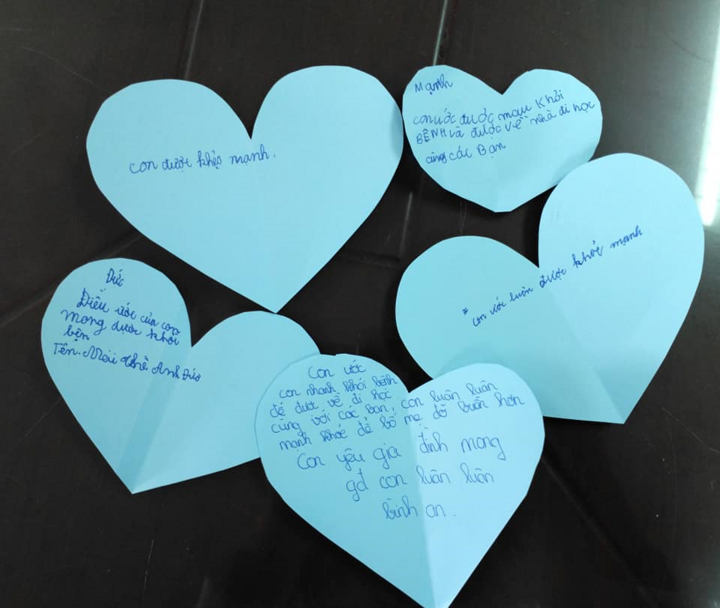 con được khỏe mạnh.
Mạnh
con ước được mau khỏi
BỆNH và được về nhà đi học
cùng các Bạn
* con ước luôn được khỏe mạnh
Đức
Điều ước của con
mong được khỏi
bện
Tên. Mai thế Anh Đức
Con ước
con nhanh khỏi bệnh
để được về đi học
cùng với các bạn, con luôn luôn
mạnh khoẻ để bố mẹ đỡ buồn hơn
Con yêu gia đình mong
gđ con luôn luôn
bình an.